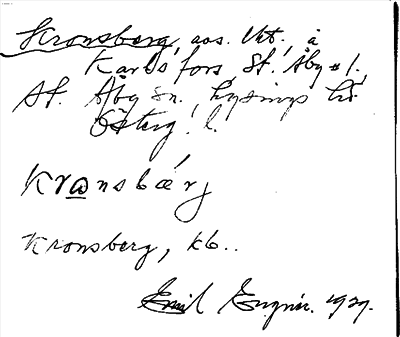 Kronsberg, avs. Utt., å
Karlsfors, St. Åby 1,
St. Åby sn., Lysings hd.
Österg. l.
Kronsbärj
Kronsberg, kb..
Emil 1929.